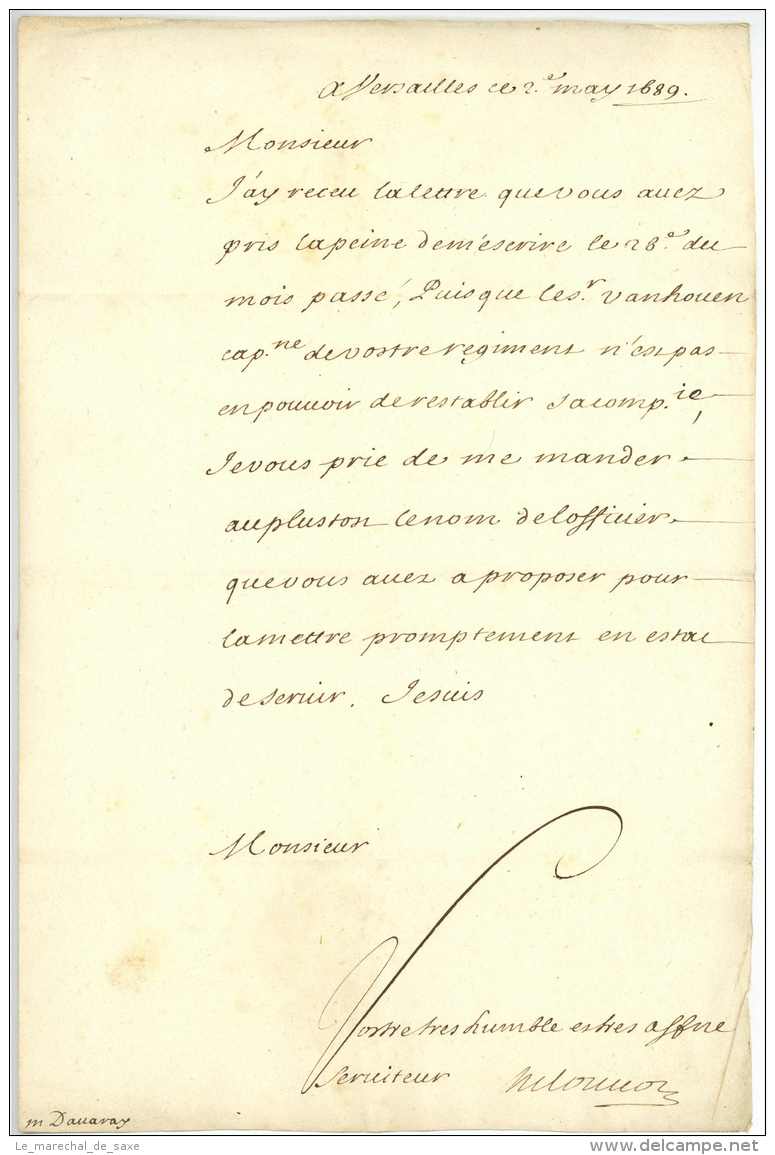 A Versailles ce 2.e may 1689.
Monsieur
J'ay receu la lettre que vous auez
pris la peine de m'escrire le 28.e du
mois passé, Puisque le s.r vanhouen
cap.ne de vostre regiment n'est pas
en pouuoir de restablir sa comp.ie,
Je vous prie de me mander
au plustost le nom de lofficier
que vous auez a proposer pour
la mettre promptement en estat
de seruir. Je suis
Monsieur
Vostre tres humble et tres affne
seruiteur
m Dauaray
Le_marechal_de_saxe
www.delcampe.net